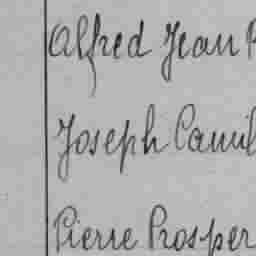 Alfred Jean
Joseph Camil
Pierre Prosper